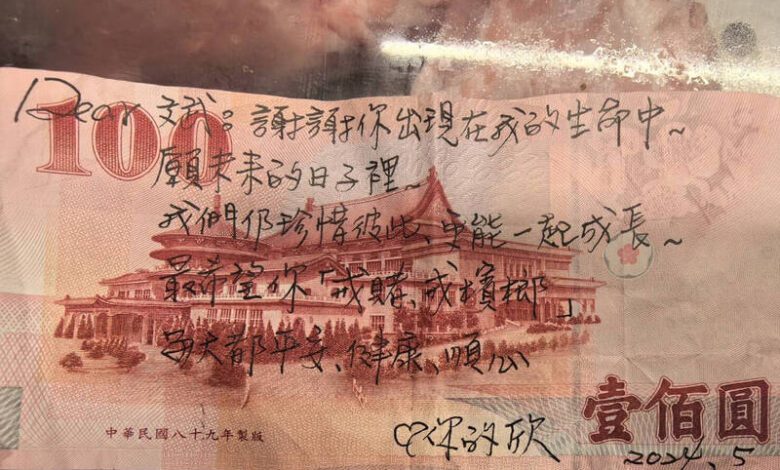 100
Dear 文斌：謝謝你出現在我的生命中～
願未來的日子裡～
我們仍珍惜彼此、更能一起成長～
最希望你「戒賭、戒檳榔」
每天都平安、健康、順心
中華民國八十九年製版
♡你的欣
壹佰圓
2024 5